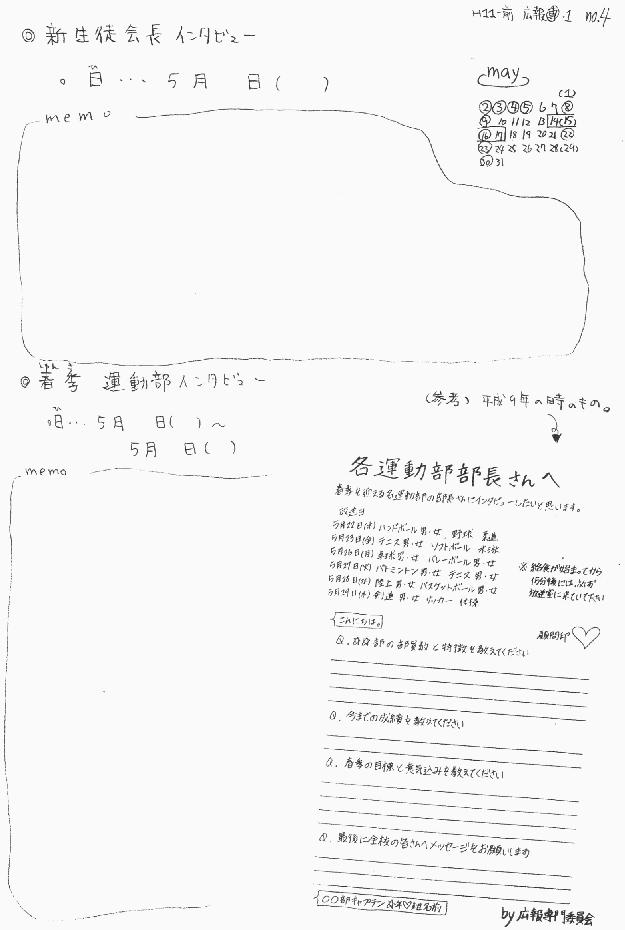 H11-前 広報
no.4
◎ 新生徒会長 インタビュー
。 目… 5月 日( )
memo
may
(1)
2 3 4 5 6 7 8
9 10 11 12 13 14 15
16 17 18 19 20 21 22
23 24 25 26 27 28 (29)
30 31
◎ 春季 運動部インタビュー
。目… 5月 日( )〜
5月 日( )
memo
(参考) 平成9年の時のもの。
各運動部部長さんへ
春季を迎える各運動部の部長さんにインタビューしたいと思います。
放送日
5月22日(木) ハンドボール 男・女 野球 柔道
5月23日(金) テニス 男・女 ソフトボール 水泳
5月26日(月) 卓球 男・女 バレーボール 男・女
5月27日(火) バドミントン 男・女 テニス 男・女
5月28日(水) 陸上 男・女 バスケットボール 男・女
5月29日(木) 剣道 男・女 サッカー 体操
※ 給食が始まってから
10分後には
放送室に来ていて下さい
顧問印
こんにちは。
Q. 部の部員数と特徴を教えてください
Q. 今までの成績を教えてください
Q. 春季の目標と意気込みを教えてください
Q. 最後に全校の皆さんへメッセージをお願いします
○○部キャプテン ☆年♡組名前
by 広報専門委員会